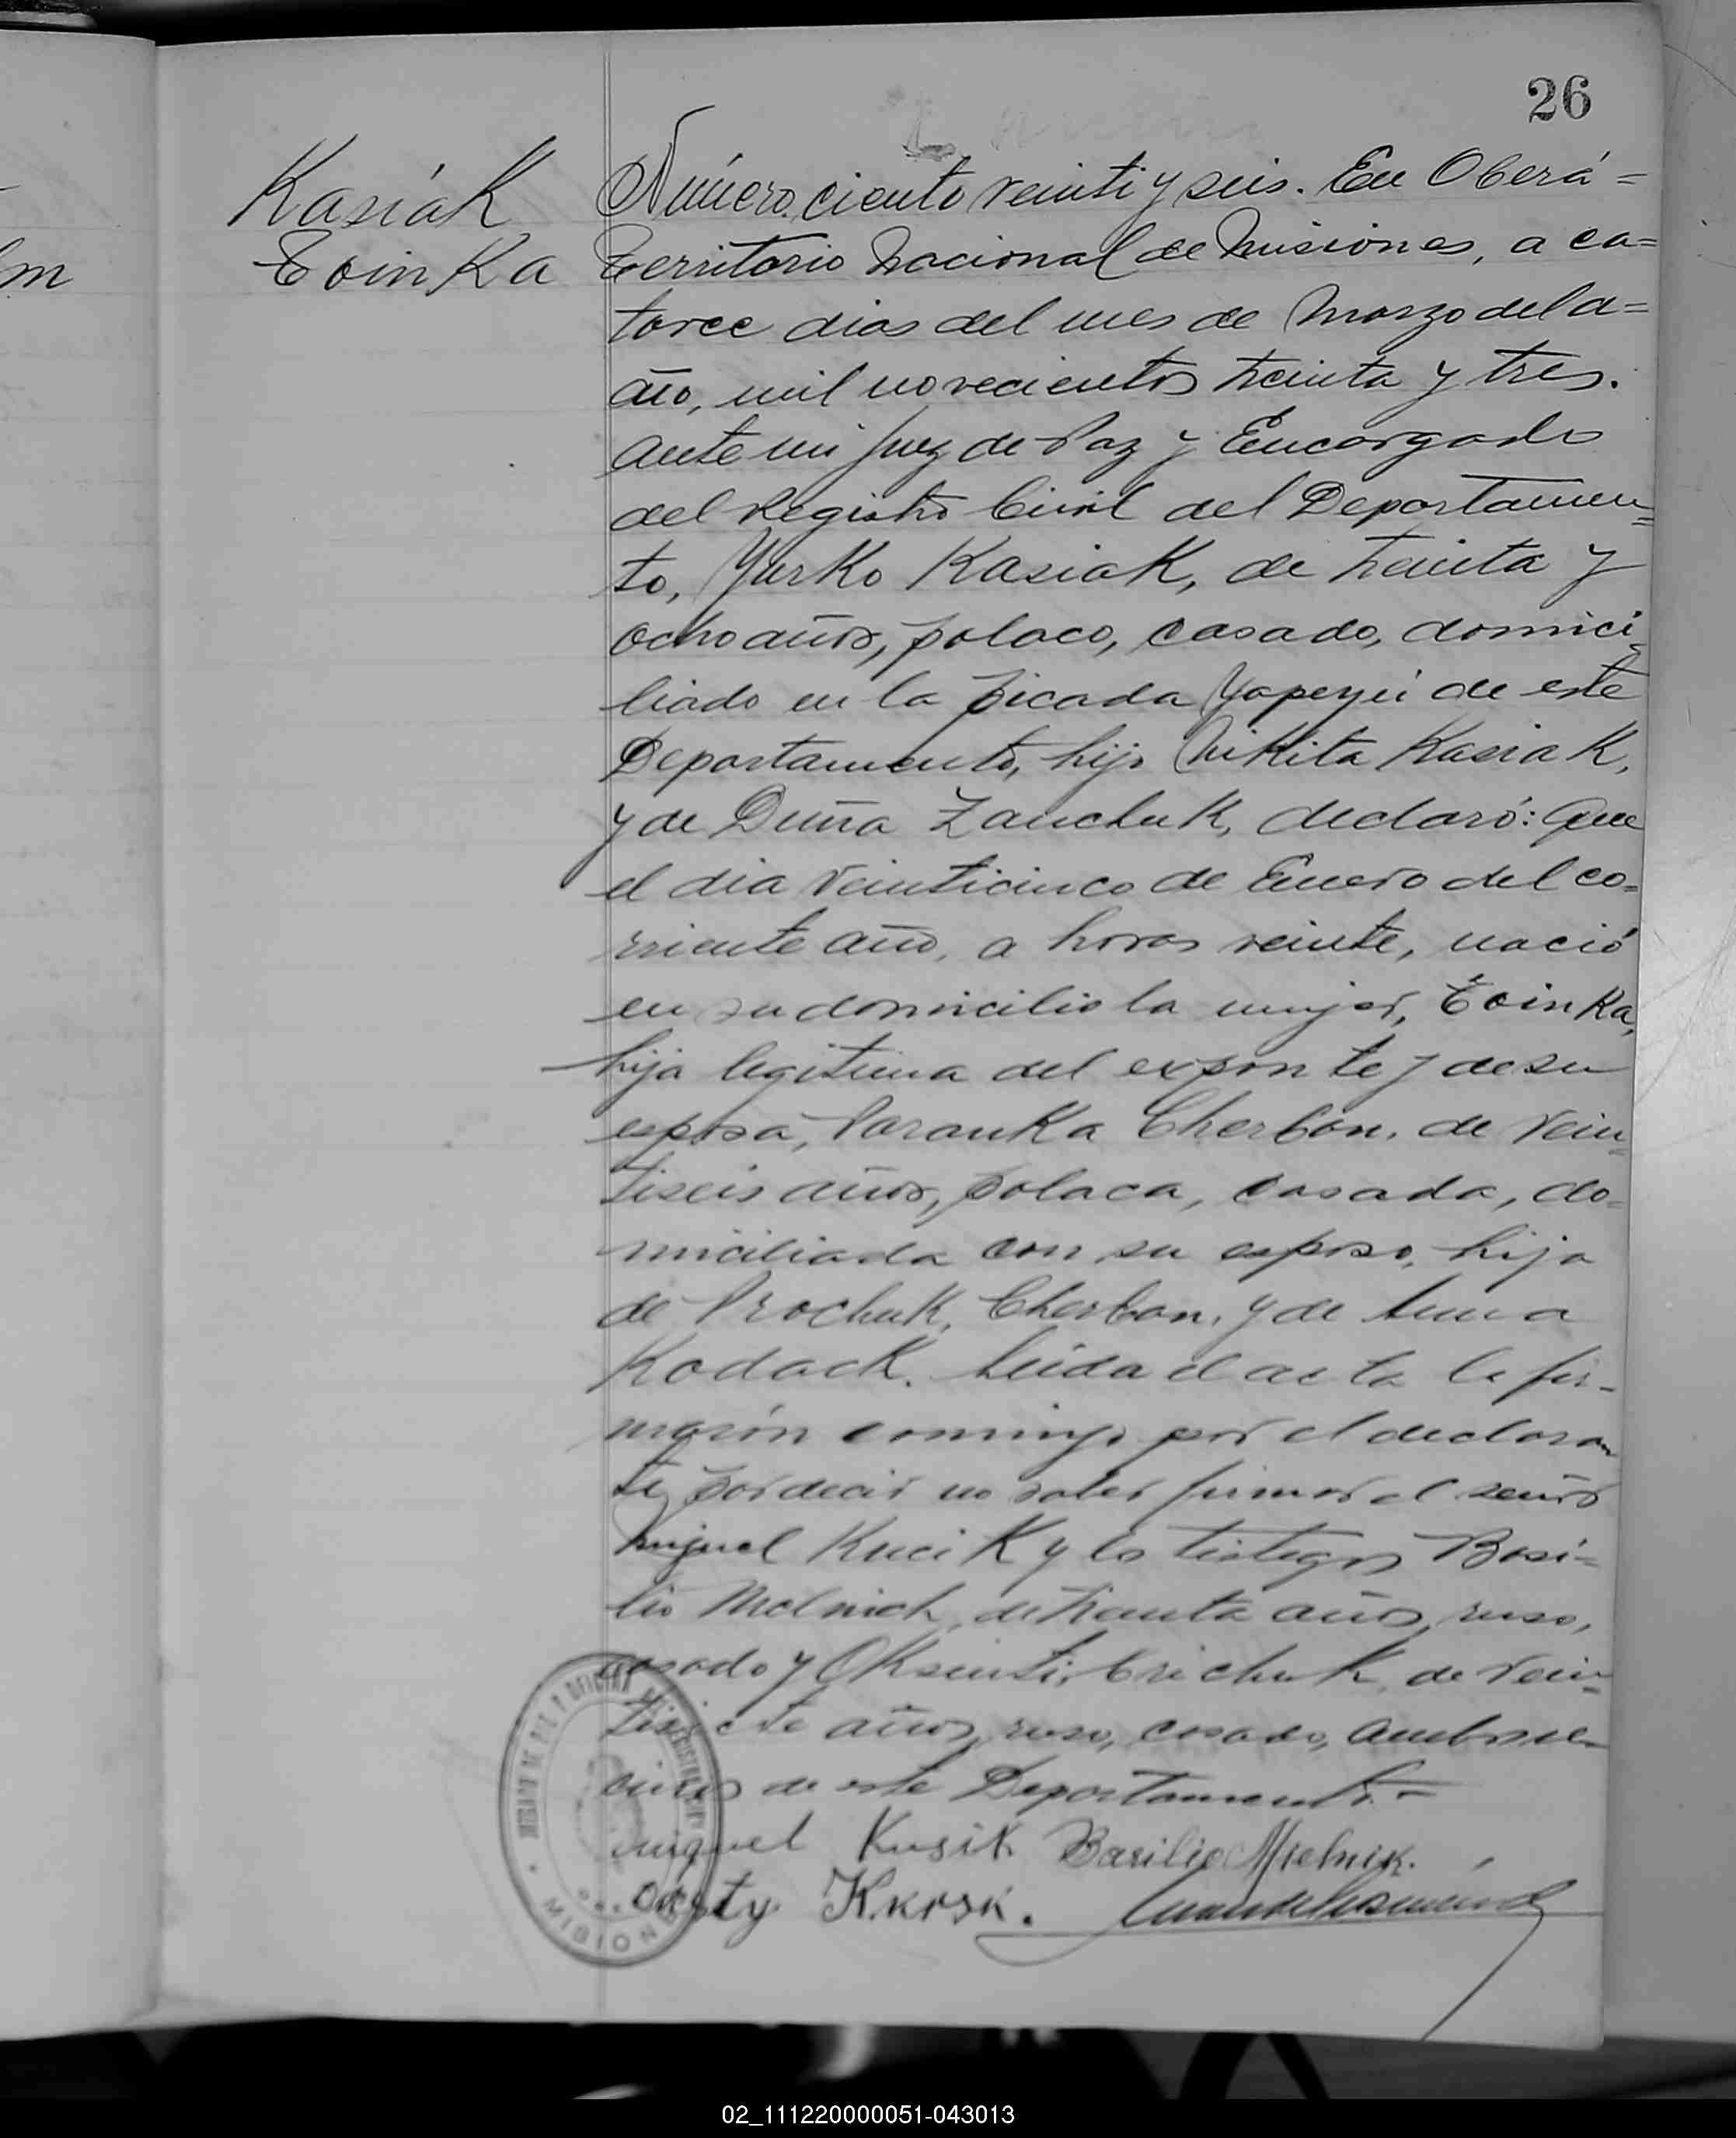 26
Kasiak
Eoinka
Número ciento veinti y seis. En Oberá=
Territorio Nacional de Misiones, a ca=
torce dias del mes de Marzo del a=
año, mil novecientos treinta y tres.
ante mi Juez de Paz y Encargado
del Registro Civil del Departamen=
to, Yurko Kasiak, de treinta y
ocho años, polaco, casado, domici-
liado en la picada Yapeyú de este
Departamento, hijo Nikita Kasiak,
y de Duña Zanchuk, declaró: Que
el dia veinticinco de Enero del co-
rriente año, a horas veinte, nació
en su domicilio la mujer, Eoinka,
hija legitima del expon te y de su
esposa, Paranka Cherban, de vein=
tiseis años, polaca, casada, do-
miciliada con su esposo, hija
de Prochuk, Cherban, y de
Kodack. Leida el acta la fir-
marón conmigo por el declaran
te por decir no saber firmar el señor
Miguel Kucik y los testegos Basi=
lio Melnich, de treinta años, ruso,
casado y Oksenti, Crichuk, de vein=
tisiete años, ruso, casado, ambos ve-
cinos de este Departamento.-
miguel Kusik Basilio Mielnik.
MISIONES